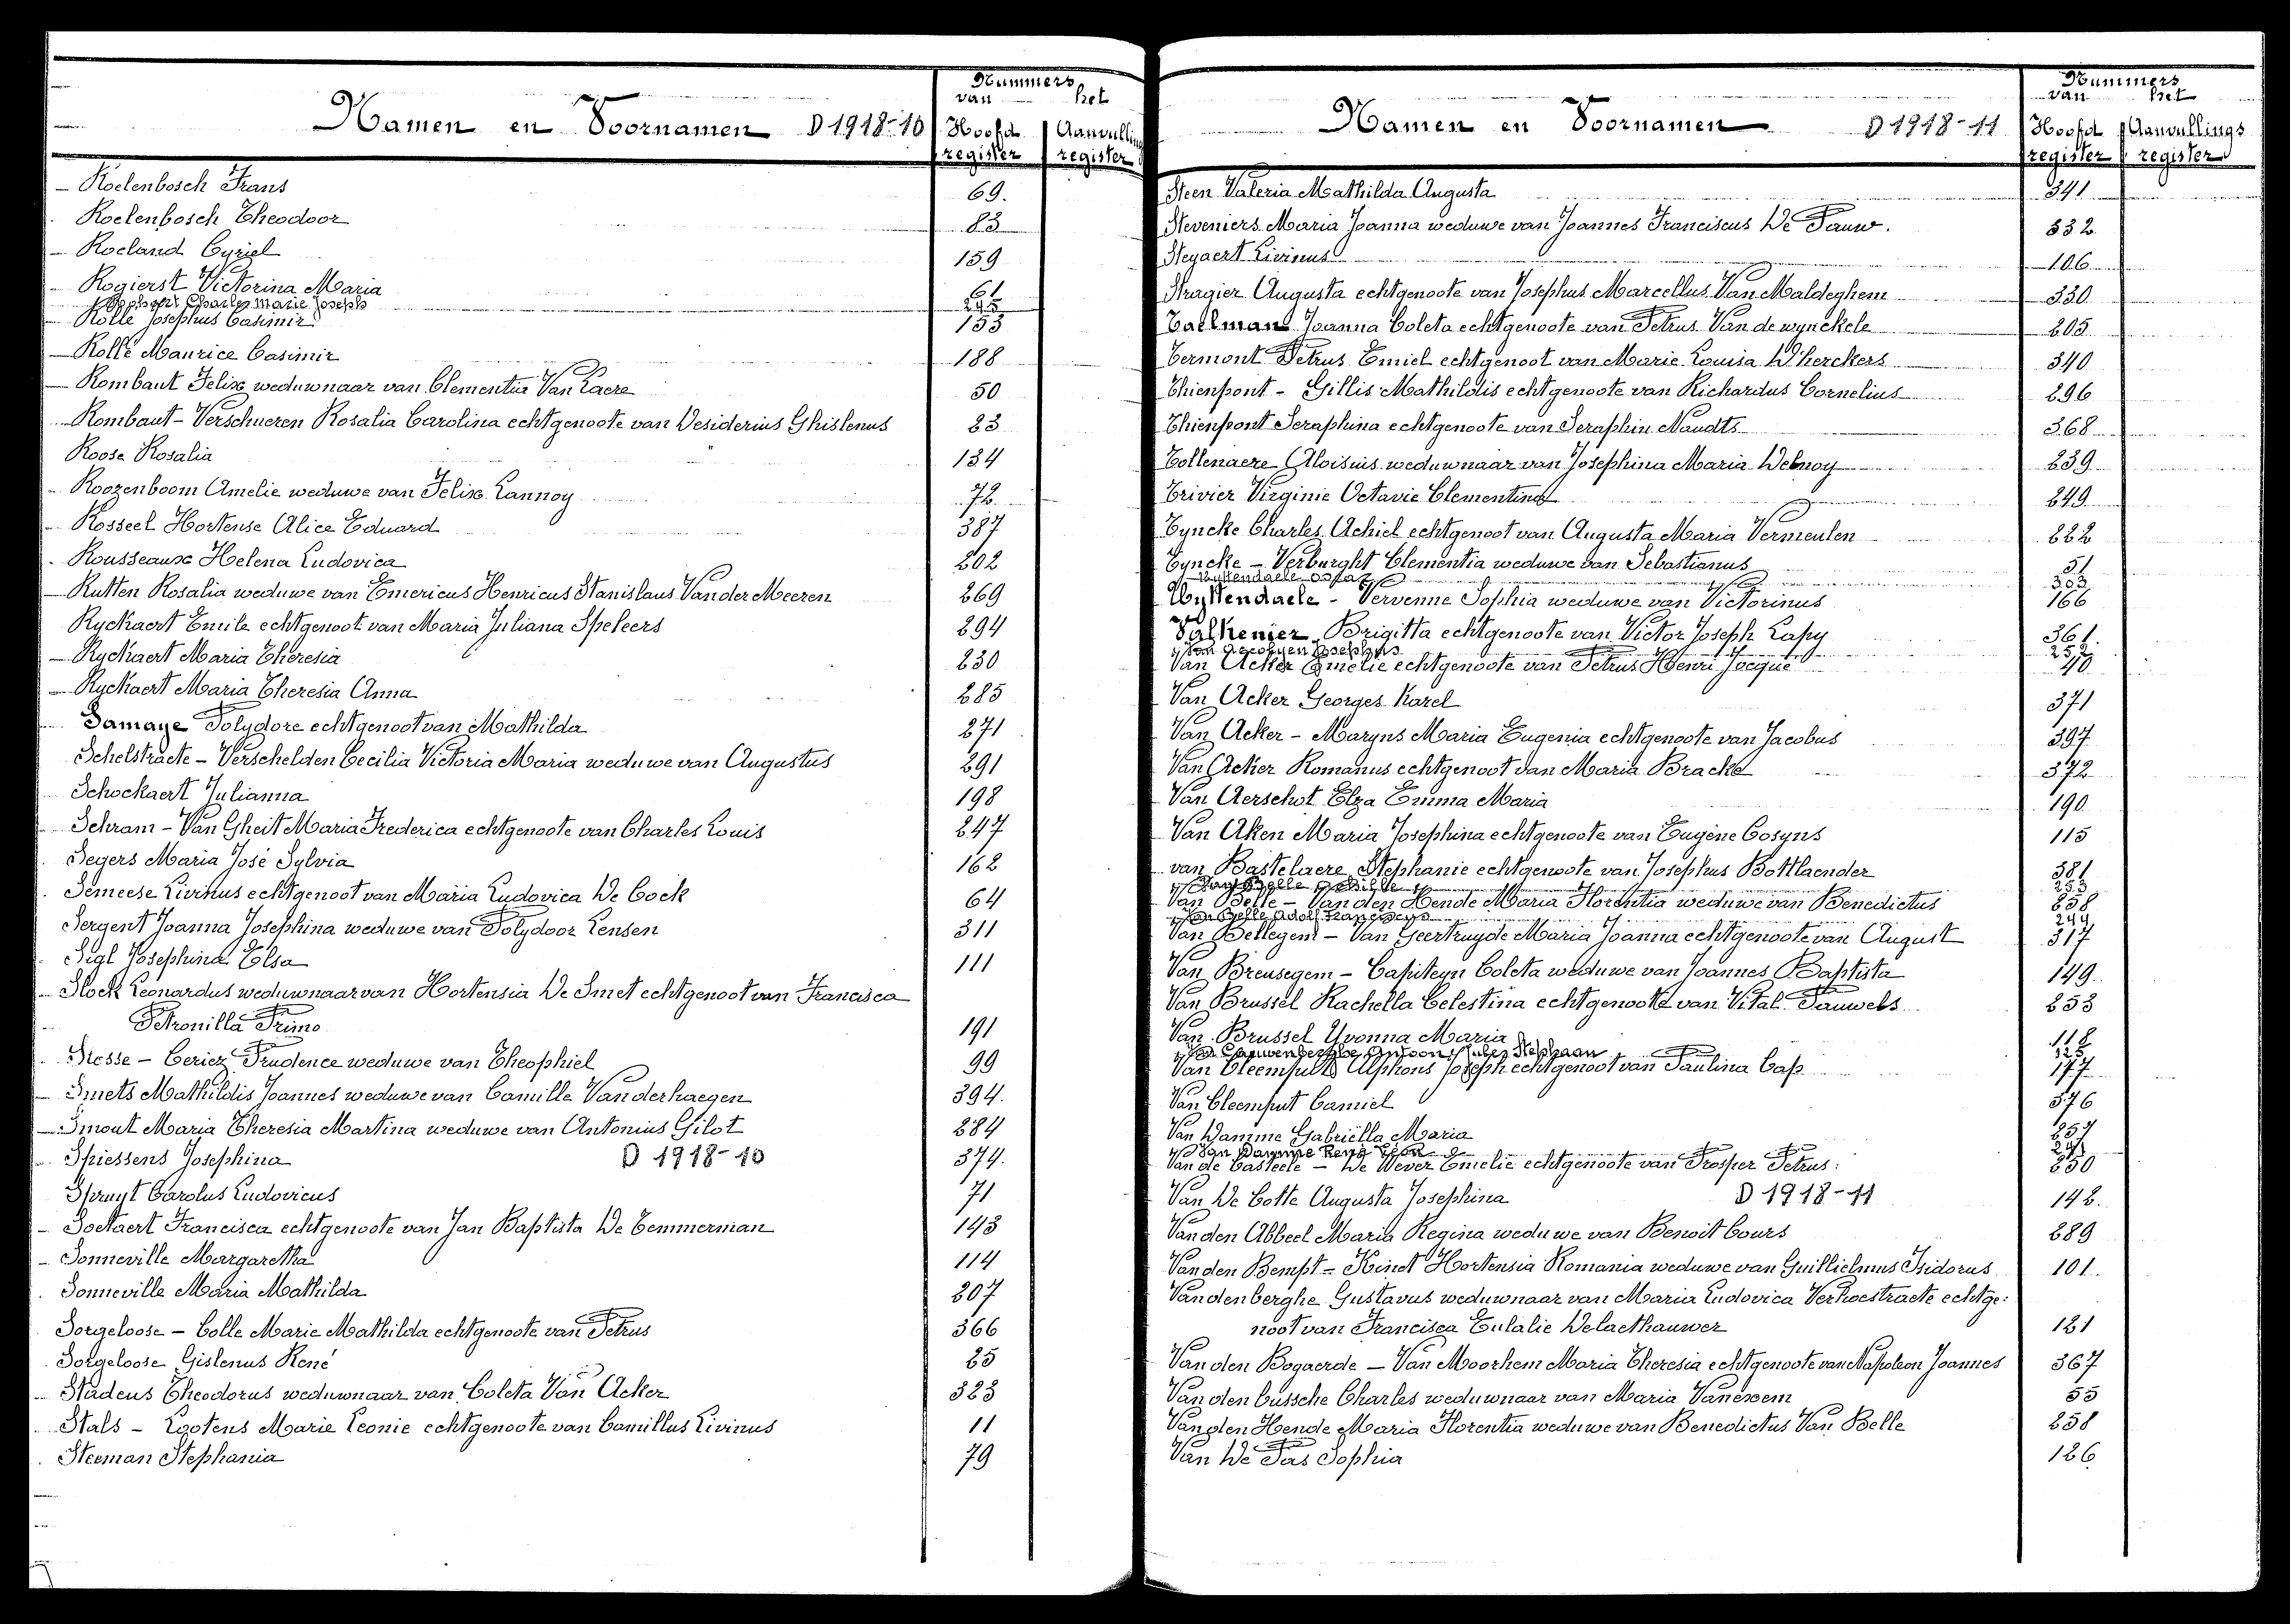 Nummers
van het
Namen en Voornamen D 1918-10 Hoofd Aanvullings
register register
Roelenbosch Frans 69.
Roelenbosch Theodoor 83
Roeland Cyriel 159
Rogierst Victorina Maria 61
Charles Marie Joseph 245
Rolle Josephus Casimir 153
Rolle Maurice Casimir 188
Rombaut Felix weduwnaar van Clementia Van Laere 50
Rombaut - Verschueren Rosalia Carolina echtgenoote van Desiderius Ghislenus 23
Roose Rosalia 134
Roozenboom Amelie weduwe van Felix Lannoy 72
Rosseel Hortense Alice Eduard 387
Rousseaux Helena Ludovica 202
Rutten Rosalia weduwe van Emericus Henricus Stanislaus Van der Meeren 269
Ryckaert Emile echtgenoot van Maria Juliana Speleers 294
Ryckaert Maria Theresia 230
Ryckaert Maria Theresia Anna 285
Samaye Polydore echtgenoot van Mathilda 271
Schelstraete - Verschelden Cecilia Victoria Maria weduwe van Augustus 291
Schockaert Julianna 198
Schram - Van Gheit Maria Frederica echtgenoote van Charles Louis 247
Segers Maria José Sylvia 162
Semeese Livinus echtgenoot van Maria Ludovica De Cock 64
Sergent Joanna Josephina weduwe van Polydoor Lensen 311
Sigl Josephina Elsa 111
Slock Leonardus weduwnaar van Hortensia De Smet echtgenoot van Francisca
Petronilla Primo 191
Slosse - Ceriez Prudence weduwe van Theophiel 99
Smets Mathildis Joannes weduwe van Camille Vanderhaegen 394.
Smout Maria Theresia Martina weduwe van Antonius Gilot 284
Spiessens Josephina D 1918-10 374.
Spruyt Carolus Ludovicus 71
Soetaert Francisca echtgenoote van Jan Baptista De Temmerman 143
Sonneville Margaretha 114
Sonneville Maria Mathilda 207
Sorgeloose - Colle Marie Mathilda echtgenoote van Petrus 366
Sorgeloose Gislenus René 25
Stadeus Theodorus weduwnaar van Coleta Van Acker 323
Stals - Lootens Marie Leonie echtgenoote van Camillus Livinus 11
Steeman Stephania 79
Nummers
van het
Namen en Voornamen D 1918-11 Hoofd Aanvullings
register register
Steen Valeria Mathilda Augusta 341
Steveniers Maria Joanna weduwe van Joannes Franciscus De Pauw. 332
Steyaert Livinus 106
Stragier Augusta echtgenoote van Josephus Marcellus Van Maldeghem 330
Taelman Joanna Coleta echtgenoote van Petrus Van de wynckele 205
Termont Petrus Emiel echtgenoot van Marie Louisa D'herckers 340
Thienpont - Gillis Mathildis echtgenoote van Richardus Cornelius 296
Thienpont Seraphina echtgenoote van Seraphin Naudts 368
Tollenaere Aloisius weduwnaar van Josephina Maria Debnoy 239
Trivier Virginie Octavie Clementina 249
Tyncke Charles Achiel echtgenoot van Augusta Maria Vermeulen 222
Tyncke - Verburght Clementia weduwe van Sebastianus 51
Uyttendaele Oscar 303
Uyttendaele - Vervenne Sophia weduwe van Victorinus 166
Valkenier Brigitta echtgenoote van Victor Joseph Lapy 361.
Van Josephus 252
Van Acker Emelie echtgenoote van Petrus Henri Jacque 40
Van Acker Georges Karel 371
Van Acker - Maryns Maria Eugenia echtgenoote van Jacobus 397
Van Acker Romanus echtgenoot van Maria Bracke 372
Van Aerschot Elza Emma Maria 190
Van Aken Maria Josephina echtgenoote van Eugène Cosyns 115
van Bastelaere Stephanie echtgenoote van Josephus Bottlaender 381
Van Belle Achille 253
Van Belle - Van den Hende Maria Florentia weduwe van Benedictus 258
Van Belle Adolf Franciscus 244
Van Bellegem - Van Geertruyde Maria Joanna echtgenoote van August 317
Van Breusegem - Capiteyn Coleta weduwe van Joannes Baptista 149
Van Brussel Rachella Celestina echtgenoote van Vital Pauwels 233
Van Brussel Yvonna Maria 112
Van Cauwenberghe Antoon Stephaan 125
Van Cleemputte Alphons Joseph echtgenoot van Paulina Cap 177
Van Cleemput Camiel 376
Van Damme Gabriëlla Maria 257
Van Damme René Léon 247
Van de Casteele - De Wever Emelie echtgenoote van Prosper Petrus: 250
Van De Cotte Augusta Josephina D 1918-11 142.
Van den Abbeel Maria Regina weduwe van Benoit Cours 289
Van den Bempt = Kindt Hortensia Romania weduwe van Guillielmus Isidorus 101
Vandenberghe Gustavus weduwnaar van Maria Ludovica Verhoestraete echtge:
noot van Francisca Eulalie Delaethauwer 121
Van den Bogaerde - Van Moorhem Maria Theresia echtgenoote van Napoleon Joannes 367
Van den bussche Charles weduwnaar van Maria Vanexem 55
Van den Hende Maria Florentia weduwe van Benedictus Van Belle 258
Van De Pas Sophia 126